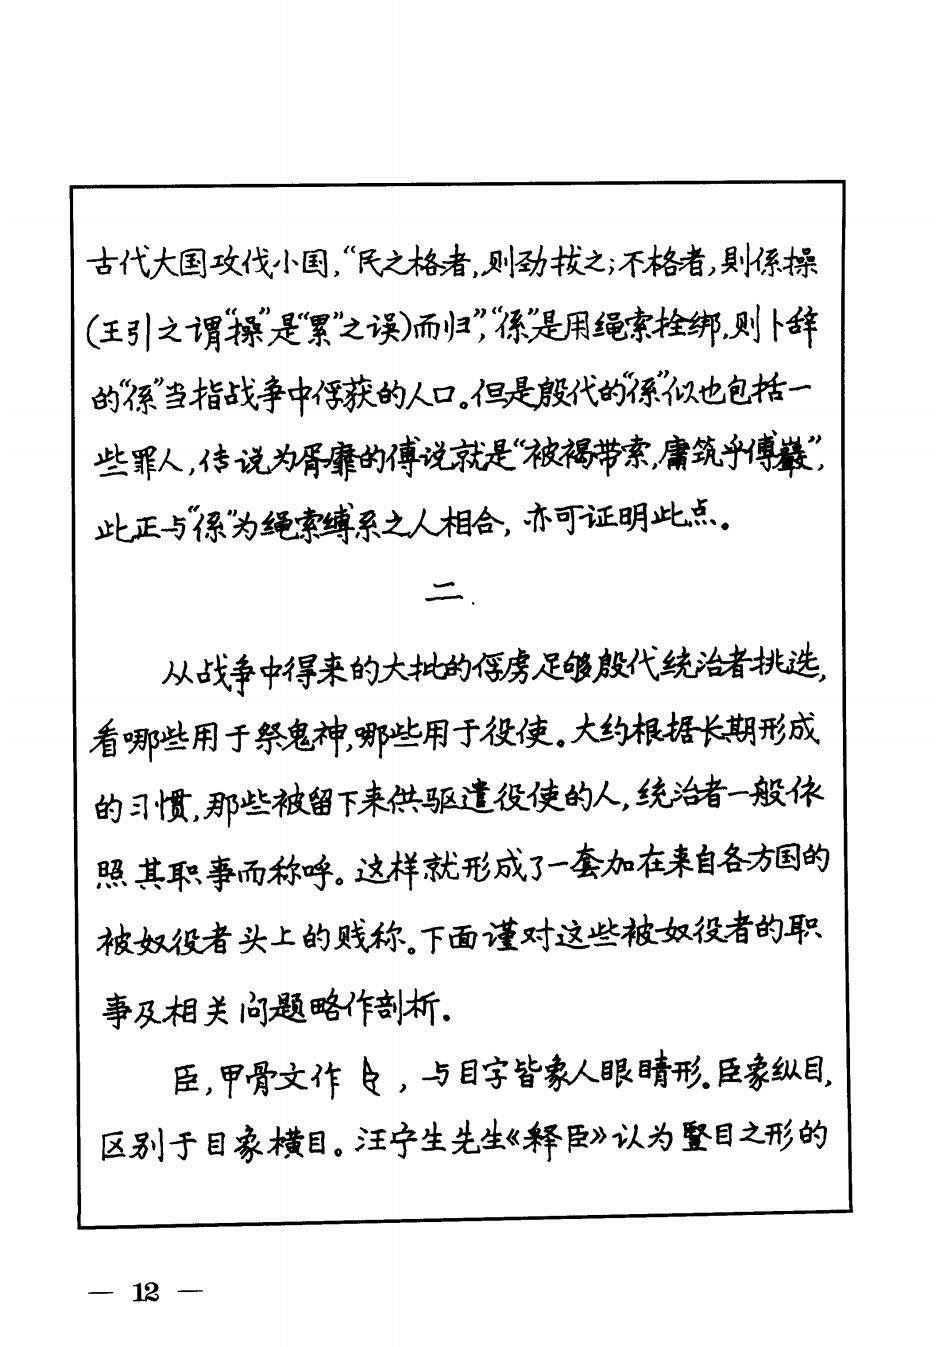 古代大国攻伐小国,“民之格者,则劲拔之;不格者,則係操
(王引之谓“操”是“累”之误)而归”,“係”是用绳索拴绑,则卜辞
的“係”当指战争中俘获的人口。但是殷代的“係”似也包括一
些罪人,传说为胥靡的傅说就是“被褐带索,庸筑乎傅巖”,
此正与“係”为绳索缚系之人相合,亦可证明此点。
二
从战争中得来的大批的俘虏足够殷代统治者挑选,
看哪些用于祭鬼神,哪些用于役使。大约根据长期形成
的习惯,那些被留下来供驱遣役使的人,统治者一般依
照其职事而称呼。这样就形成了一套加在来自各方国的
被奴役者头上的贱称。下面谨对这些被奴役者的职
事及相关问题略作剖析。
臣,甲骨文作 ,与目字皆象人眼睛形。臣象纵目,
区别于目象横目。汪宁生先生《释臣》认为竖目之形的
— 12 —